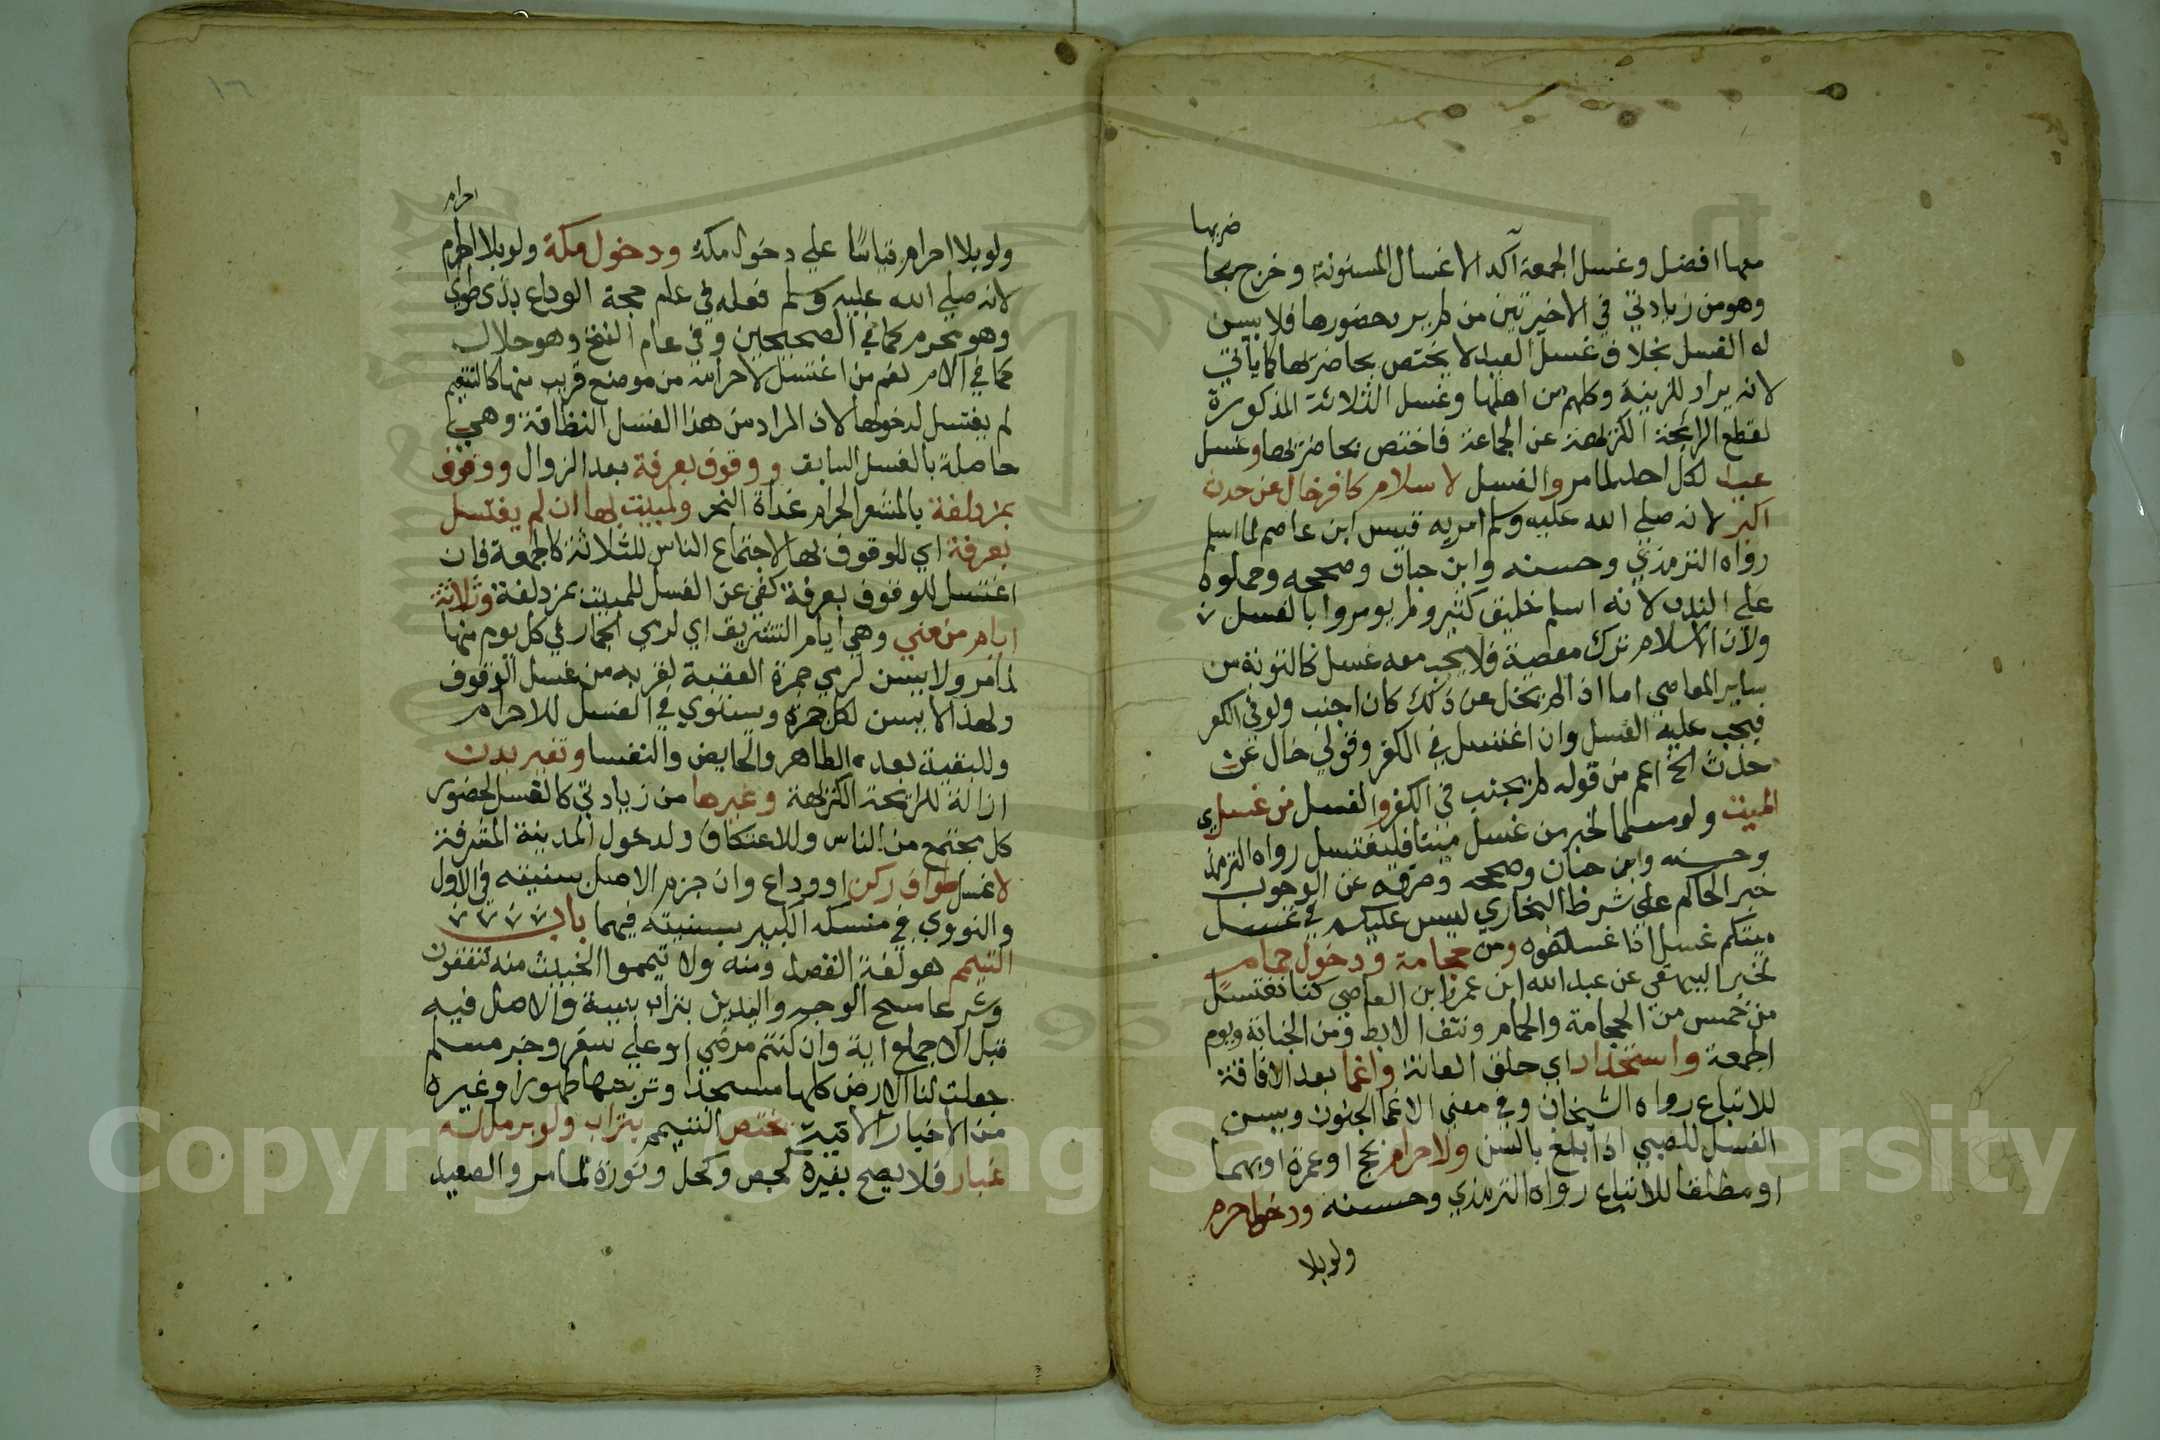 ضربها
معها افضل وغسل الجمعة آكد الاغسال المسنونة وخرج بحا
وهو من زيادتي في الاخيرتين من لم يرد حضورها فلا يسن
له الغسل بخلاف غسل العيد لا يختص بحاضرتها كما ياتي
لانه يراد للزينة وكلهم من اهلها وغسل الثلاثة المذكورة
لقطع الرائحة الكريهة عن الجماعة فاختص بحاضرتها وغسل
عيد لكل احد لما مر والغسل لاسلام كافر خال عن حدث
اكبر لانه صلي الله عليه وسلم امر به قيس ابن عاصم لما اسلم
رواه الترمذي وحسنه وابن حبان وصححه وحملوه
علي الندب لانه اسلم خليق كثير ولم يومروا بالغسل
ولان الاسلام ترك معصية فلا يجب معه غسل كالتوبة من
ساير المعاصي اما اذا لم يخل عن ذلك كان اجنب ولو في الكفر
فيجب عليه الغسل وان اغتسل في الكفر وقولي خال عن
حدث الخ اعم من قوله لم يجنب في الكفر والغسل من غسل
الميت ولو مسلما لخبر من غسل ميتا فليغتسل رواه الترمذ
وحسنه وابن حبان وصححه وصرفه عن الوجوب
خبر الحاكم على شرط البخاري ليس عليكم في غسل
ميتكم غسل اذا غسلتموه ومن حجامة ودخول حمام
لخبر البيهقى عن عبد الله ابن عمرو ابن العاصي كنا نغتسل
من خمس من الحجامة والحمام ونتف الابط ومن الجنابة ويوم
الجمعة واستحداد اي حلق العانة واغما بعد الافاقة
للاتباع رواه الشيخان وفي معنى الاغما الجنون ويسن
الغسل للصبي اذا بلغ بالسن ولاحرام بحج او عمرة او بهما
او مطلقا للاتباع رواه الترمذي وحسنه ودخول حرم
ولو بلا
١٦
احرام
ولو بلا احرام قياسًا علي دخول مكة ودخول مكة ولو بلا احرام
لانه صلي الله عليه وسلم فعله في عام حجة الوداع بذي طوي
وهو محرم كما في الصحيحين وفي عام الفتح وهو حلال
كما في الام نعم من اغتسل لاحرامه من موضع قريب منها كالتنعيم
لم يغتسل لدخولها لان المراد من هذا الغسل النظافة وهي
حاصلة بالغسل السابق ووقوف بعرفة بعد الزوال ووقوف
بمزدلفة بالمشعر الحرام غداة النحر ولمبيت بها ان لم يغتسل
بعرفة اي للوقوف بها لاجتماع الناس للثلاثة كالجمعة فان
اغتسل للوقوف بعرفة كفى عن الغسل للمبيت بمزدلفة وثلاثة
ايام من مني وهي ايام التشريق اي لرمي الجمار في كل يوم منها
لما مر ولا يسن لرمي جمرة العقبة لقربه من غسل الوقوف
ولهذا لا يسن لكل جمرة ويستوي في الغسل للاحرام
وللبقية بعده الطاهر والحايض والنفسا وتغير بدن
ازالة للرائحة الكريهة وغيرها من زيادتي كالغسل لحضور
كل مجتمع من الناس وللاعتكاف ولدخول المدينة المشرفة
لا غسل طواف ركن او وداع وان جزم الاصل بسنيته في الاول
والنووي في منسكه الكبير بسنيته فيهما باب
التيمم هو لغة القصد ومنه ولا تيمموا الخبيث منه تنفقون
وشرعا مسح الوجه واليدين بتراب بنية والاصل فيه
قبل الاجماع اية وان كنتم مرضي او علي سفر وخبر مسلم
جعلت لنا الارض كلها مسجدا وتربتها طهورا وغيره
من الاخبار الاتية يختص التيمم بتراب ولو برمل له
غبار فلا يصح بغيره كجص وكحل ونورة لما مر والصعيد
Copyright © King Saud University